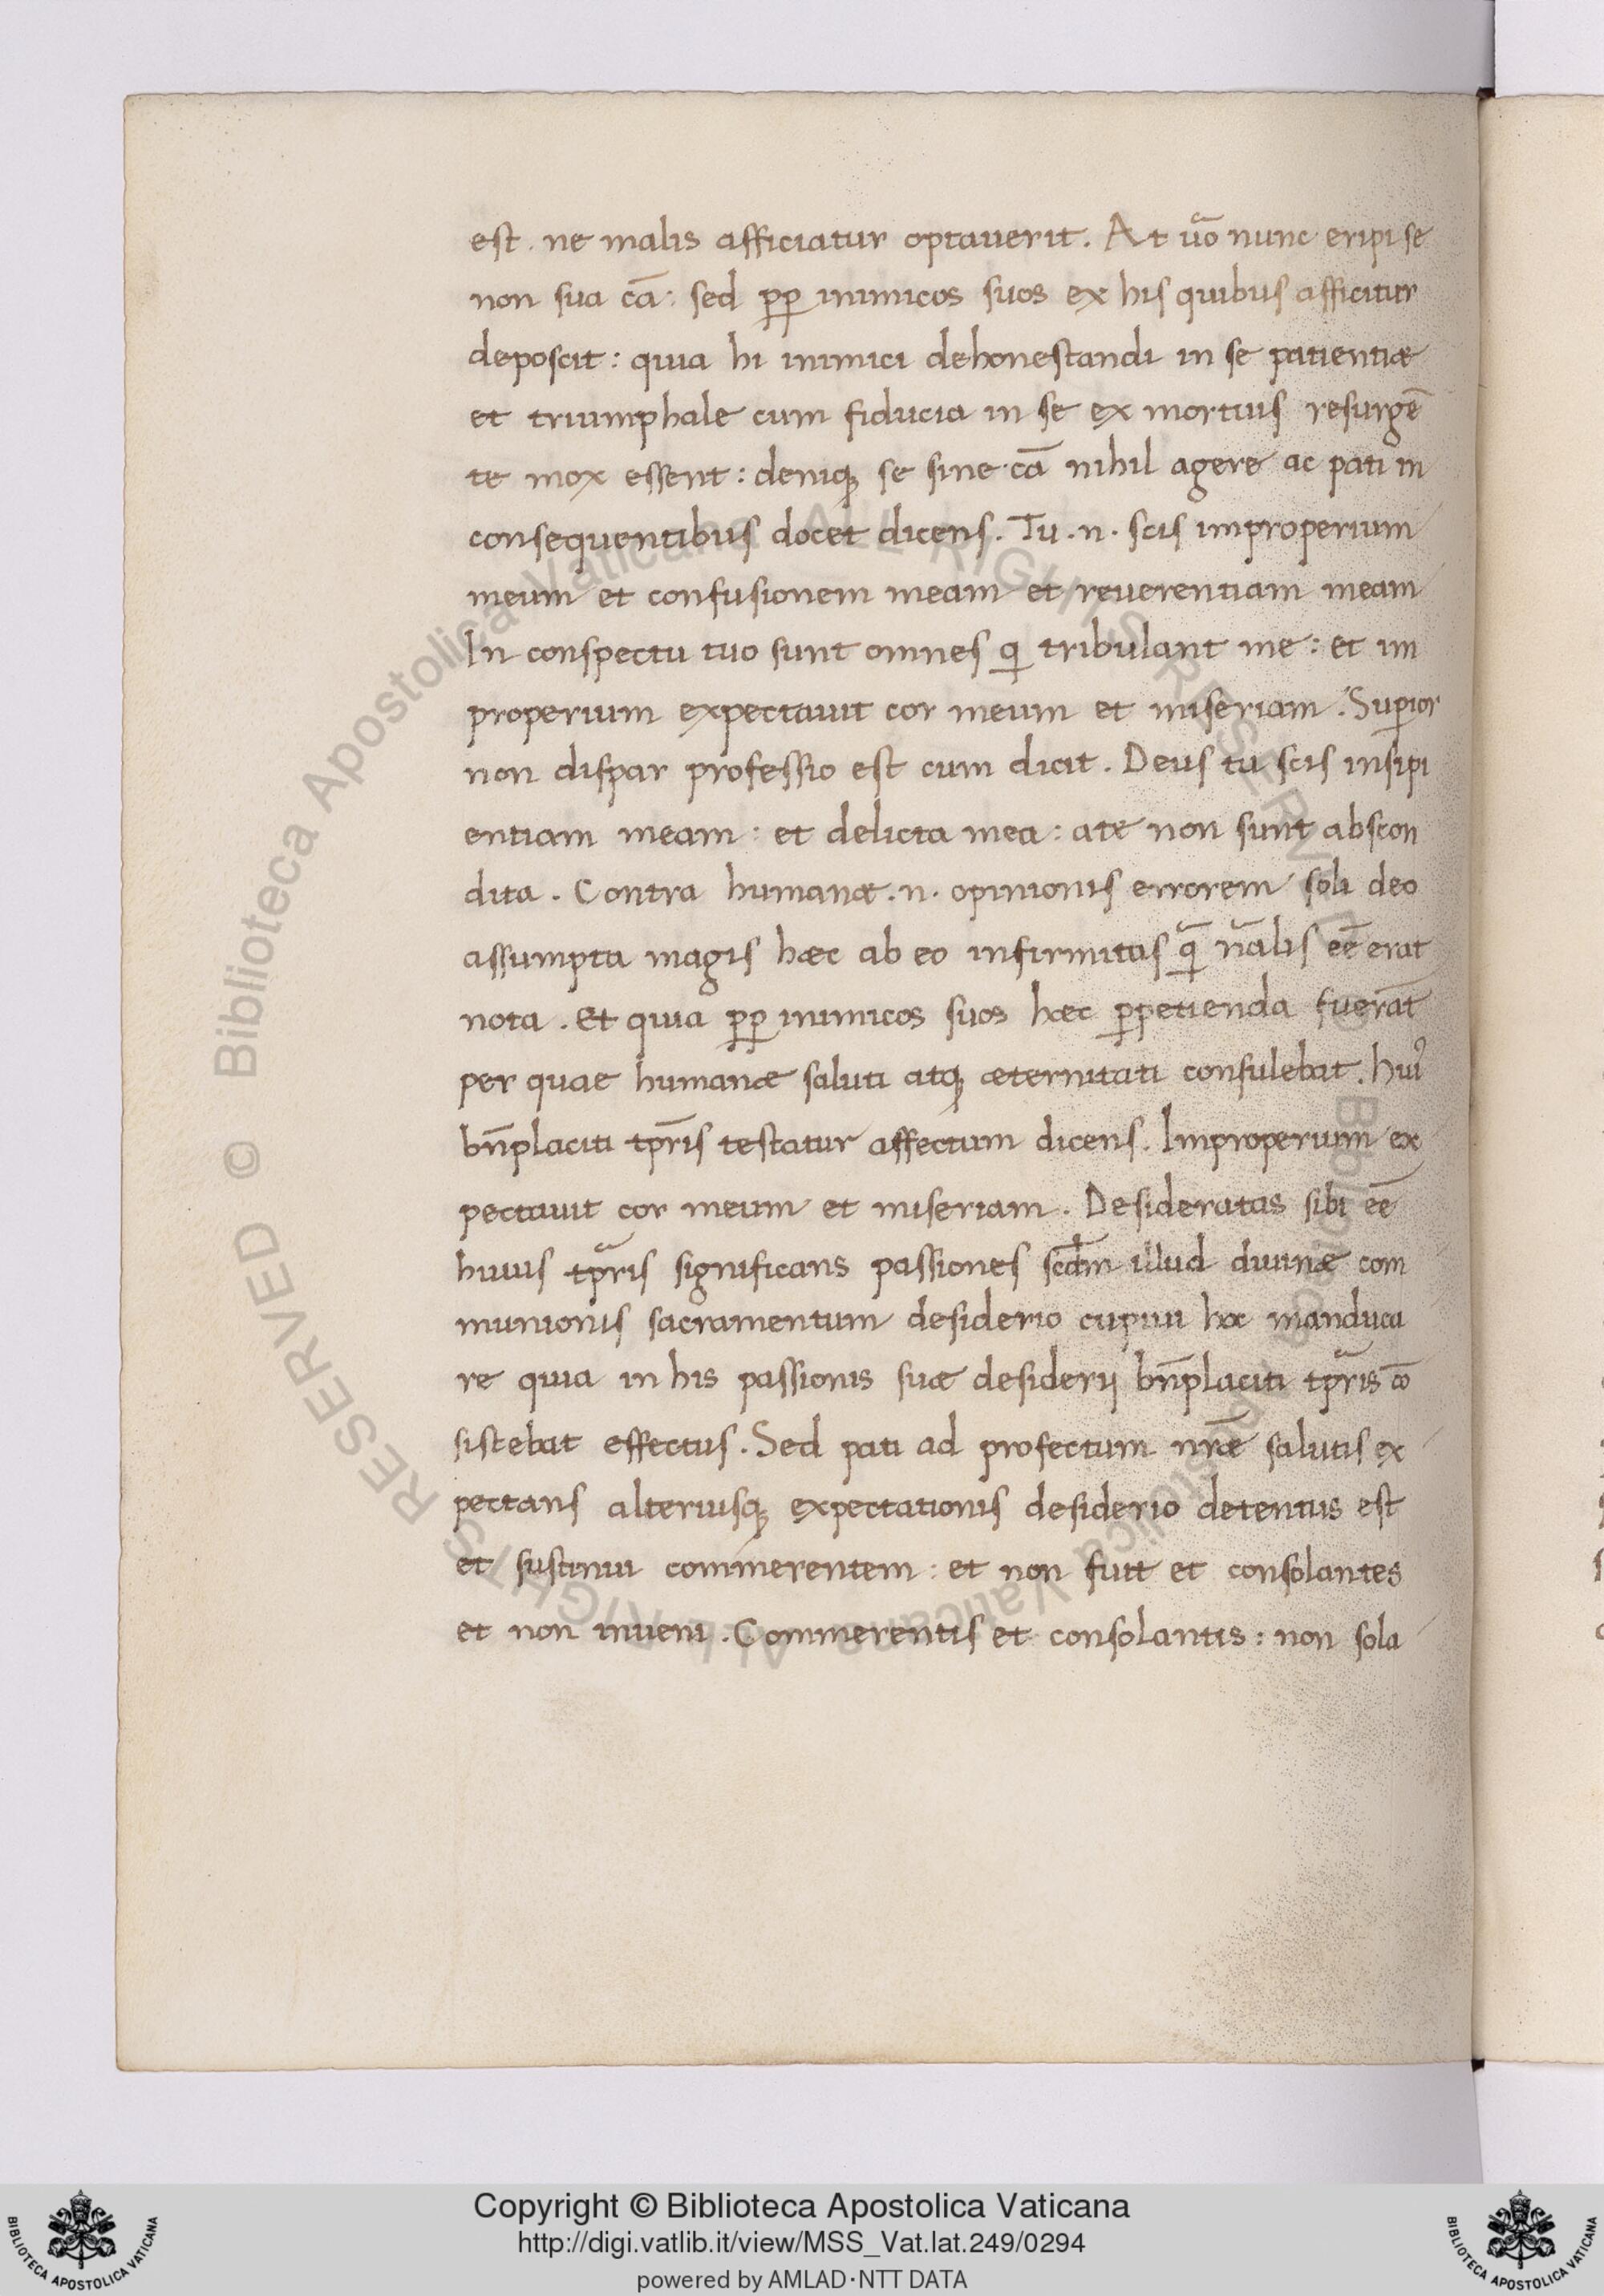 est. ne malis afficiatur optauerit. At uoᷓ nunc eripi se
non sua cā: sed ꝓp inimicos suos ex his quibus afficitur
deposcit: quia hi inimici dehonestandi in se patientiæ
et triumphale cum fiducia in se ex mortuis resurgē
te mox essent: deniqꝫ se sine cā nihil agere ac pati in
consequentibus docet dicens. Tu .n. scis improperium
meum et confusionem meam et reuerentiam meam
In conspectu tuo sunt omnes q tribulant me: et im
properium expectauit cor meum et miseriam. Suꝑior
non dispar professio est cum dicit. Deus tu scis insipi
entiam meam: et delicta mea: ate non sunt abscon
dita. Contra humanæ .n. opinionis errorem soli deo
assumpta magis hæc ab eo infirmitas qᷓ naᷓlis eē erat
nota. Et quia ꝓp inimicos suos hæc ꝑpetienda fuerāt
per quae humanæ saluti atqꝫ æternitati consulebat. huiꝰ
bn̄placiti tp̄ris testatur affectum dicens. Improperium ex
pectauit cor meum et miseriam. Desideratas sibi eē
huius tpᷓris significans passiones scdm illud diuinæ com
munionis sacramentum desiderio cupiui hoc manduca
re quia in his passionis suæ desiderij bn̄placiti tpᷓris cō
sistebat effectus. Sed pati ad profectum nr̄æ salutis ex
pectans alteriusqꝫ expectationis desiderio detentus est
et sustinui commerentem: et non fuit et consolantes
et non inueni. Commerentis et consolantis: non sola
Copyright © Biblioteca Apostolica Vaticana
http://digi.vatlib.it/view/MSS_Vat.lat.249/0294
powered by AMLAD·NTT DATA
BIBLIOTECA APOSTOLICA VATICANA
BIBLIOTECA APOSTOLICA VATICANA
© Biblioteca Apostolica Vaticana ALL RIGHTS RESERVED © Biblioteca Apostolica Vaticana ALL RIGHTS RESERVED